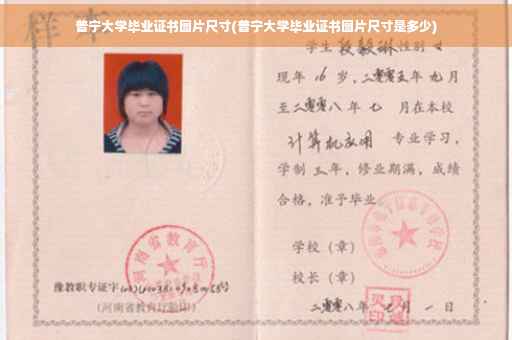 普宁大学毕业证书图片尺寸(普宁大学毕业证书图片尺寸是多少)
样本
学生段毅琳性别女
现年16岁,二零零五年九月
至二零零八年七月在本校
计算机应用 专业学习,
学制三年,修业期满,成绩
合格,准予毕业
学校(章)
校长(章)
二零零八年七月一日
河南省教育厅
豫教职专证字
(河南省教育厅验印)